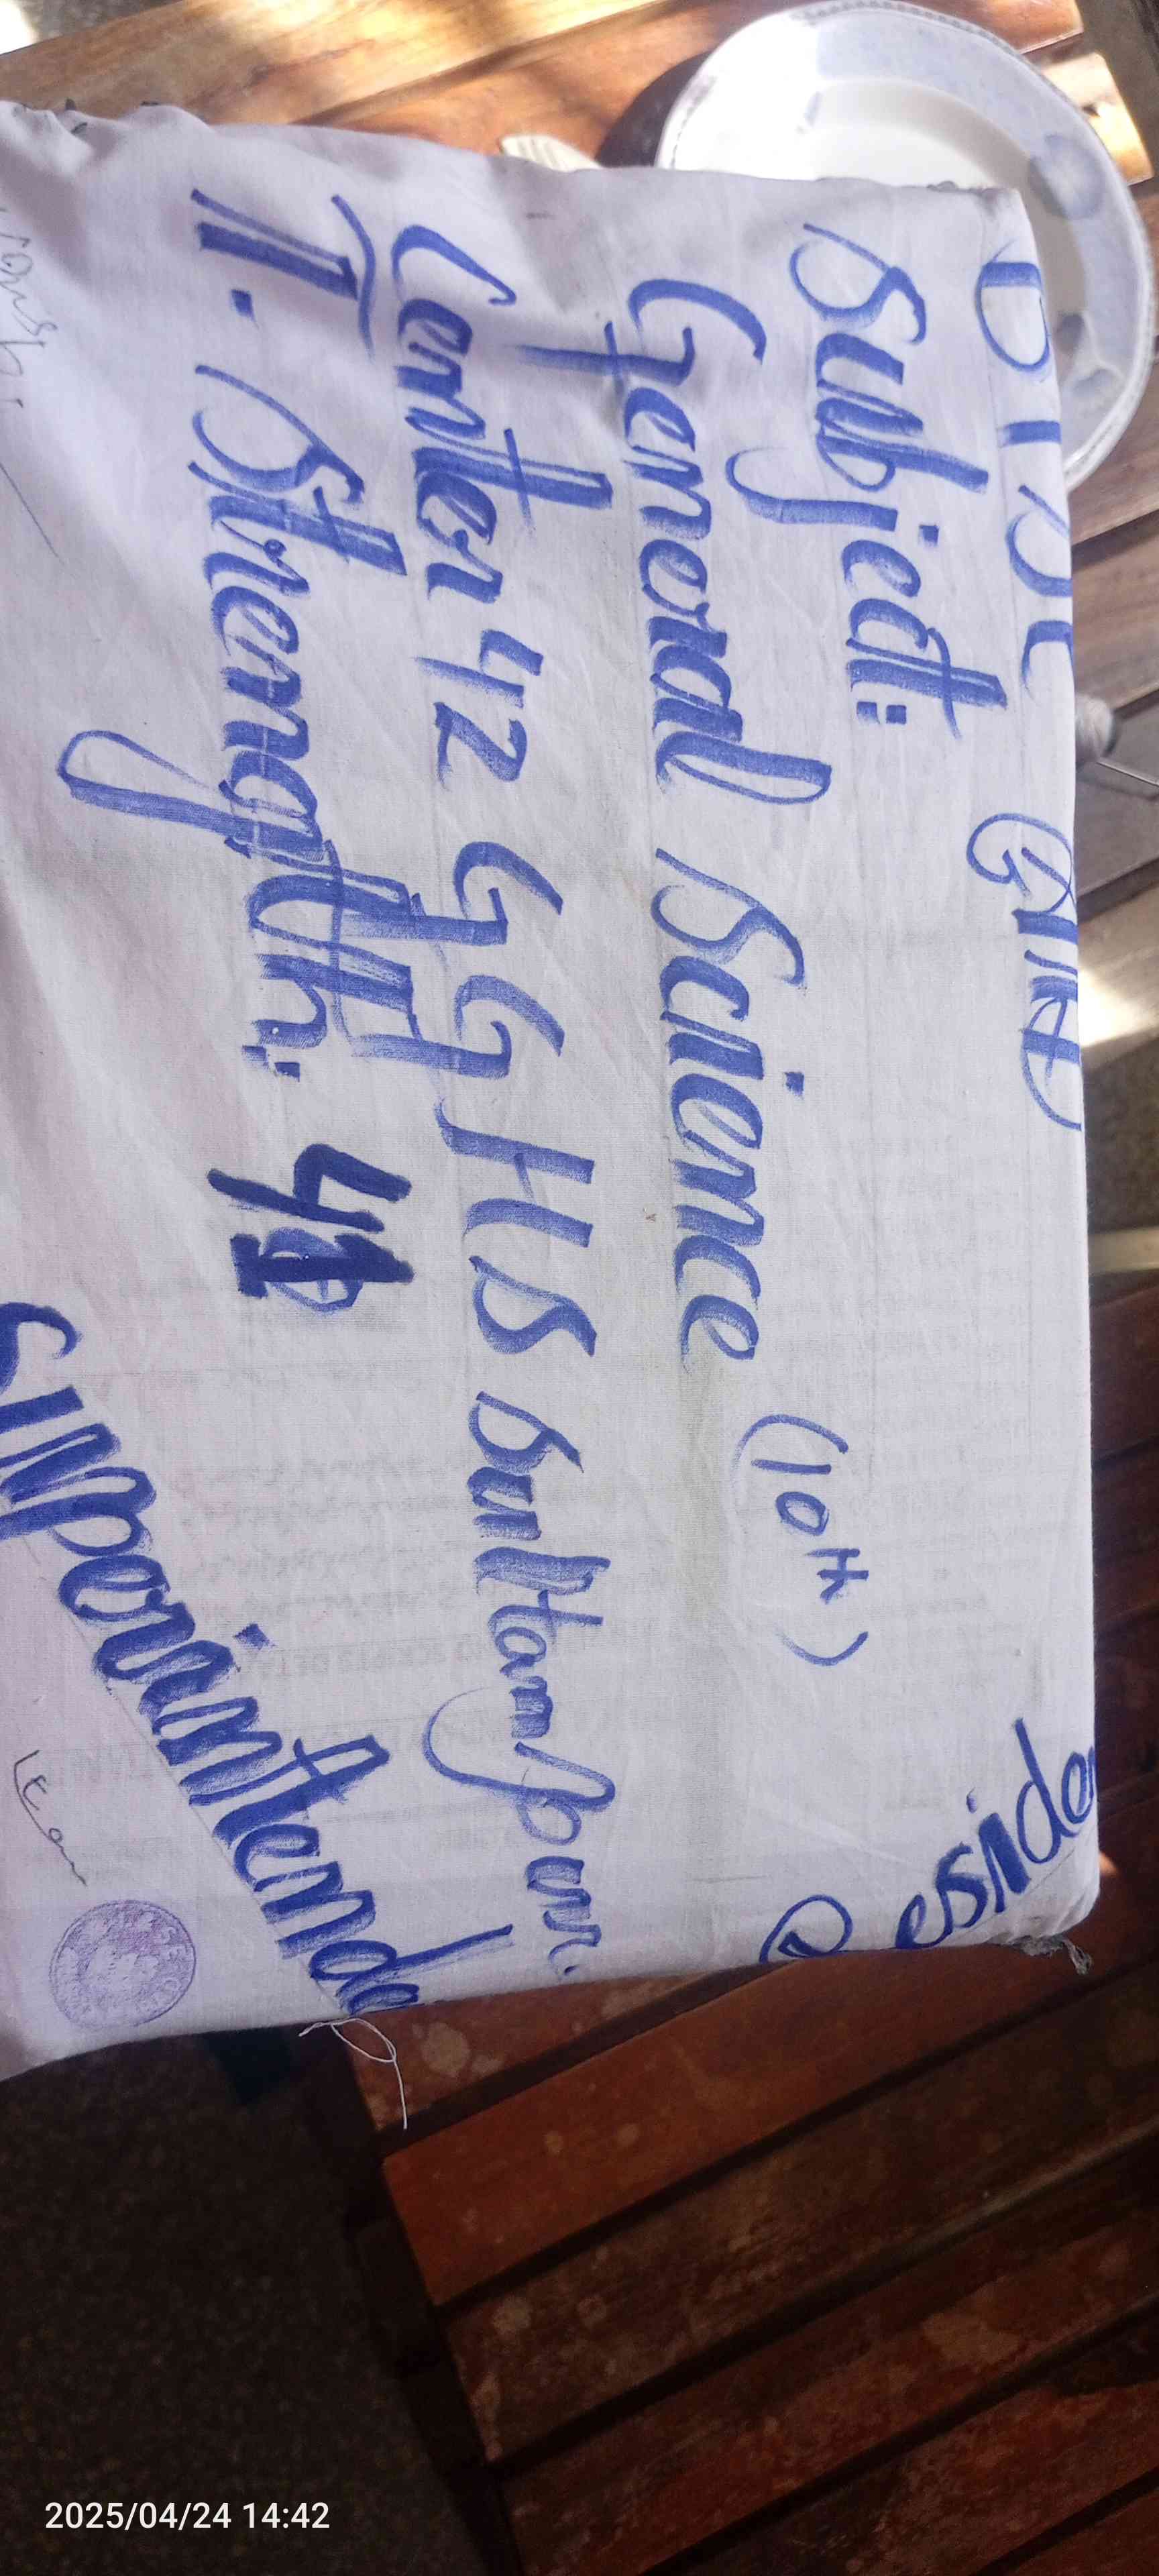 Subject:
General Science (10th)
Center 42 GGHS Sultanpur.
T. Strength: 41
Superintenda
eside
2025/04/24 14:42